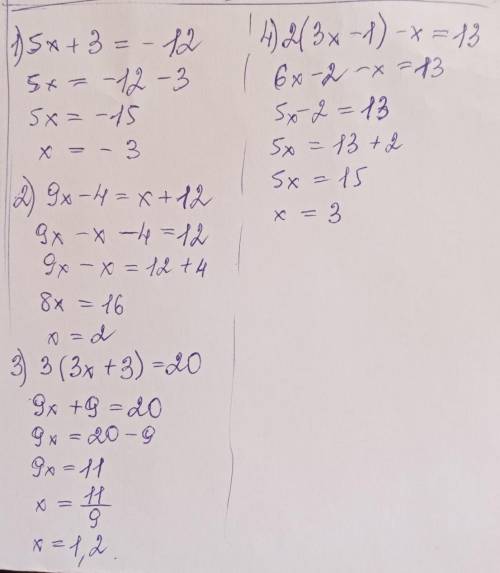 1) 5x + 3 = - 12
5x = -12 - 3
5x = -15
x = - 3
2) 9x - 4 = x + 12
9x - x - 4 = 12
9x - x = 12 + 4
8x = 16
x = 2
3) 3 (3x + 3) = 20
9x + 9 = 20
9x = 20 - 9
9x = 11
x = 11/9
x = 1,2.
4) 2(3x - 1) - x = 13
6x - 2 - x = 13
5x - 2 = 13
5x = 13 + 2
5x = 15
x = 3